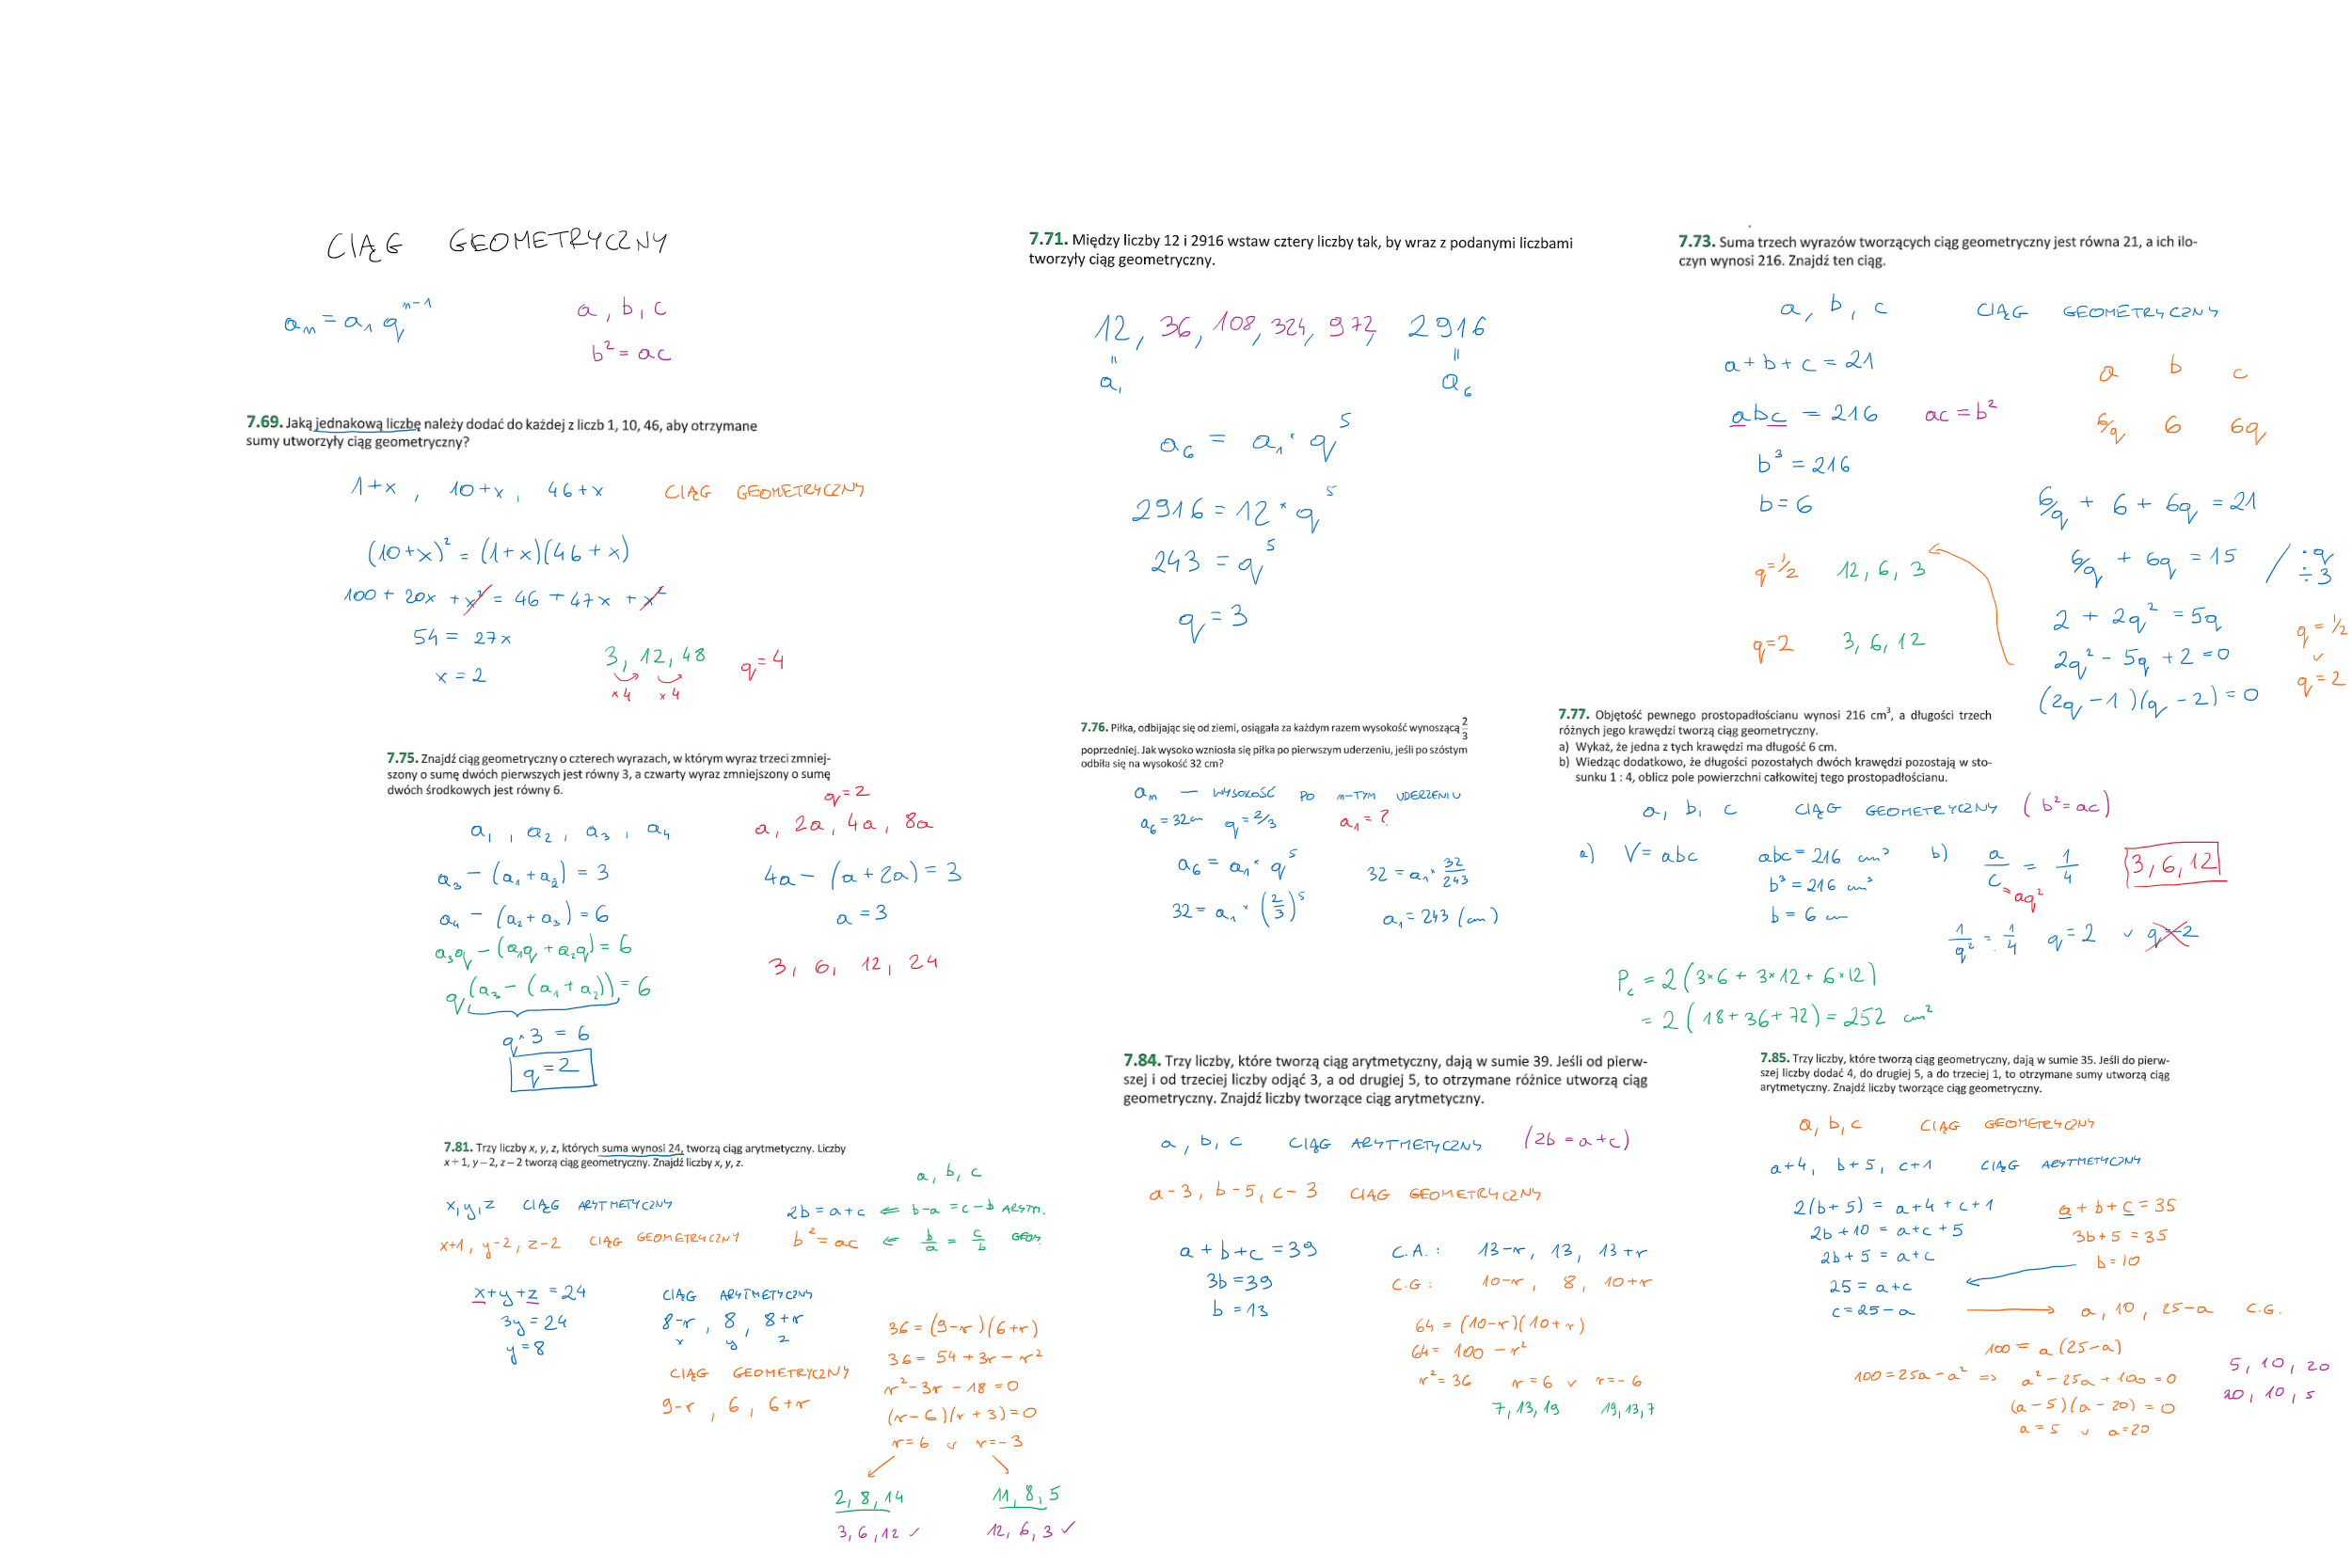 CIĄG GEOMETRYCZNY
aₙ = a₁ qⁿ⁻¹
a, b, c
b² = ac
7.69. Jaką jednakową liczbę należy dodać do każdej z liczb 1, 10, 46, aby otrzymane
sumy utworzyły ciąg geometryczny?
1+x, 10+x, 46+x CIĄG GEOMETRYCZNY
(10+x)² = (1+x)(46+x)
100 + 20x + x² = 46 + 47x + x²
54 = 27x
x = 2
3, 12, 48 q=4
×4 ×4
7.71. Między liczby 12 i 2916 wstaw cztery liczby tak, by wraz z podanymi liczbami
tworzyły ciąg geometryczny.
12, 36, 108, 324, 972, 2916
= =
a₁ a₆
a₆ = a₁ · q⁵
2916 = 12 × q⁵
243 = q⁵
q = 3
7.73. Suma trzech wyrazów tworzących ciąg geometryczny jest równa 21, a ich ilo-
czyn wynosi 216. Znajdź ten ciąg.
a, b, c CIĄG GEOMETRYCZNY
a + b + c = 21
abc = 216 ac = b²
b³ = 216
b = 6
a b c
6/q 6 6q
6/q + 6 + 6q = 21
6/q + 6q = 15 / ·q ÷3
2 + 2q² = 5q
2q² - 5q + 2 = 0
(2q - 1)(q - 2) = 0
q = 1/2
∨
q = 2
q=1/2 12, 6, 3
q=2 3, 6, 12
7.75. Znajdź ciąg geometryczny o czterech wyrazach, w którym wyraz trzeci zmniej-
szony o sumę dwóch pierwszych jest równy 3, a czwarty wyraz zmniejszony o sumę
dwóch środkowych jest równy 6.
a₁, a₂, a₃, a₄
a₃ - (a₁ + a₂) = 3
a₄ - (a₂ + a₃) = 6
a₃q - (a₁q + a₂q) = 6
q(a₃ - (a₁ + a₂)) = 6
q × 3 = 6
q = 2
q=2
a, 2a, 4a, 8a
4a - (a + 2a) = 3
a = 3
3, 6, 12, 24
7.76. Piłka, odbijając się od ziemi, osiągała za każdym razem wysokość wynoszącą 2/3
poprzedniej. Jak wysoko wzniosła się piłka po pierwszym uderzeniu, jeśli po szóstym
odbiła się na wysokość 32 cm?
aₙ — WYSOKOŚĆ PO n-TYM UDERZENIU
a₆ = 32cm q = 2/3 a₁ = ?
a₆ = a₁ × q⁵
32 = a₁ × (2/3)⁵
32 = a₁ × 32/243
a₁ = 243 (cm)
7.77. Objętość pewnego prostopadłościanu wynosi 216 cm³, a długości trzech
różnych jego krawędzi tworzą ciąg geometryczny.
a) Wykaż, że jedna z tych krawędzi ma długość 6 cm.
b) Wiedząc dodatkowo, że długości pozostałych dwóch krawędzi pozostają w sto-
sunku 1 : 4, oblicz pole powierzchni całkowitej tego prostopadłościanu.
a, b, c CIĄG GEOMETRYCZNY (b² = ac)
a) V = abc
abc = 216 cm³
b³ = 216 cm³
b = 6 cm
b) a/c = 1/4
= aq²
3, 6, 12
1/q² = 1/4 q = 2 ∨ q=-2
Pc = 2(3×6 + 3×12 + 6×12)
= 2(18 + 36 + 72) = 252 cm²
7.81. Trzy liczby x, y, z, których suma wynosi 24, tworzą ciąg arytmetyczny. Liczby
x + 1, y – 2, z – 2 tworzą ciąg geometryczny. Znajdź liczby x, y, z.
x, y, z CIĄG ARYTMETYCZNY
x+1, y-2, z-2 CIĄG GEOMETRYCZNY
a, b, c
2b = a + c ⇐ b-a = c-b ARYTM.
b² = ac ⇐ b/a = c/b GEOM.
x+y+z = 24
3y = 24
y = 8
CIĄG ARYTMETYCZNY
8-r, 8, 8+r
x y z
CIĄG GEOMETRYCZNY
9-r, 6, 6+r
36 = (9-r)(6+r)
36 = 54 + 3r - r²
r² - 3r - 18 = 0
(r-6)(r+3) = 0
r = 6 ∨ r = -3
2, 8, 14 11, 8, 5
3, 6, 12 ✓ 12, 6, 3 ✓
7.84. Trzy liczby, które tworzą ciąg arytmetyczny, dają w sumie 39. Jeśli od pierw-
szej i od trzeciej liczby odjąć 3, a od drugiej 5, to otrzymane różnice utworzą ciąg
geometryczny. Znajdź liczby tworzące ciąg arytmetyczny.
a, b, c CIĄG ARYTMETYCZNY (2b = a+c)
a-3, b-5, c-3 CIĄG GEOMETRYCZNY
a + b + c = 39
3b = 39
b = 13
C.A.: 13-r, 13, 13+r
C.G: 10-r, 8, 10+r
64 = (10-r)(10+r)
64 = 100 - r²
r² = 36 r = 6 ∨ r = -6
7, 13, 19 19, 13, 7
7.85. Trzy liczby, które tworzą ciąg geometryczny, dają w sumie 35. Jeśli do pierw-
szej liczby dodać 4, do drugiej 5, a do trzeciej 1, to otrzymane sumy utworzą ciąg
arytmetyczny. Znajdź liczby tworzące ciąg geometryczny.
a, b, c CIĄG GEOMETRYCZNY
a+4, b+5, c+1 CIĄG ARYTMETYCZNY
2(b+5) = a+4 + c+1
2b + 10 = a + c + 5
2b + 5 = a + c
25 = a + c
c = 25 - a
a + b + c = 35
3b + 5 = 35
b = 10
a, 10, 25-a C.G.
100 = a(25-a)
100 = 25a - a² ⇒ a² - 25a + 100 = 0
(a-5)(a-20) = 0
a = 5 ∨ a = 20
5, 10, 20
20, 10, 5